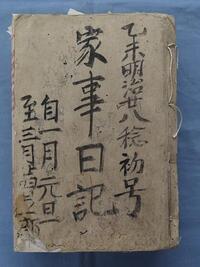 乙未明治廿八稔初号
家事日記
自一月元旦
至三月